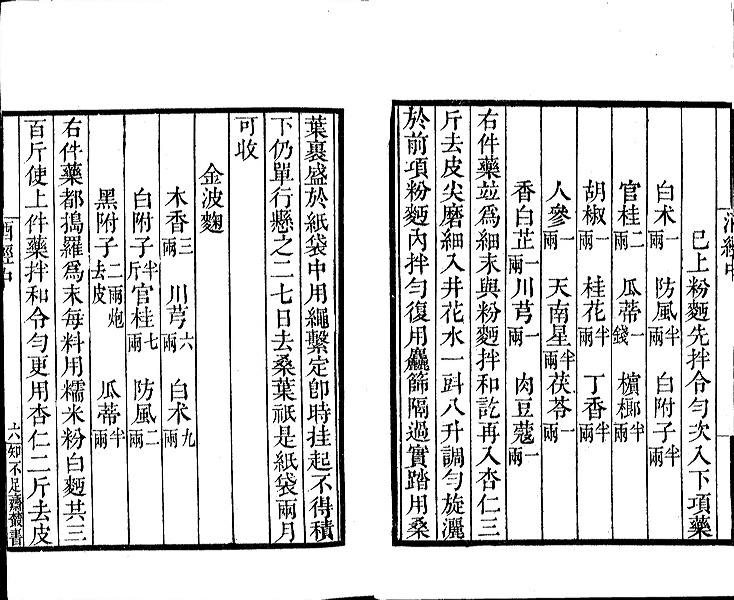 酒經中
已上粉麵先拌令勻次入下項藥
白术一兩 防風半兩 白附子半兩
官桂二兩 瓜蒂一錢 檳榔半兩
胡椒一兩 桂花半兩 丁香半兩
人參一兩 天南星半兩 茯苓一兩
香白芷一兩 川芎一兩 肉豆蔻一兩
右件藥並爲細末與粉麵拌和訖再入杏仁三
斤去皮尖磨細入井花水一㪷八升調勻旋灑
於前項粉麵內拌勻復用麤篩隔過實踏用桑
葉裹盛於紙袋中用繩繫定卽時挂起不得積
下仍單行懸之二七日去桑葉祇是紙袋兩月
可收
金波麴
木香三兩 川芎六兩 白术九兩
白附子半斤 官桂七兩 防風二兩
黑附子二兩炮去皮 瓜蒂半兩
右件藥都搗羅爲末每料用糯米粉白麵共三
百斤使上件藥拌和令勻更用杏仁二斤去皮
酒經中
六知不足齋叢書